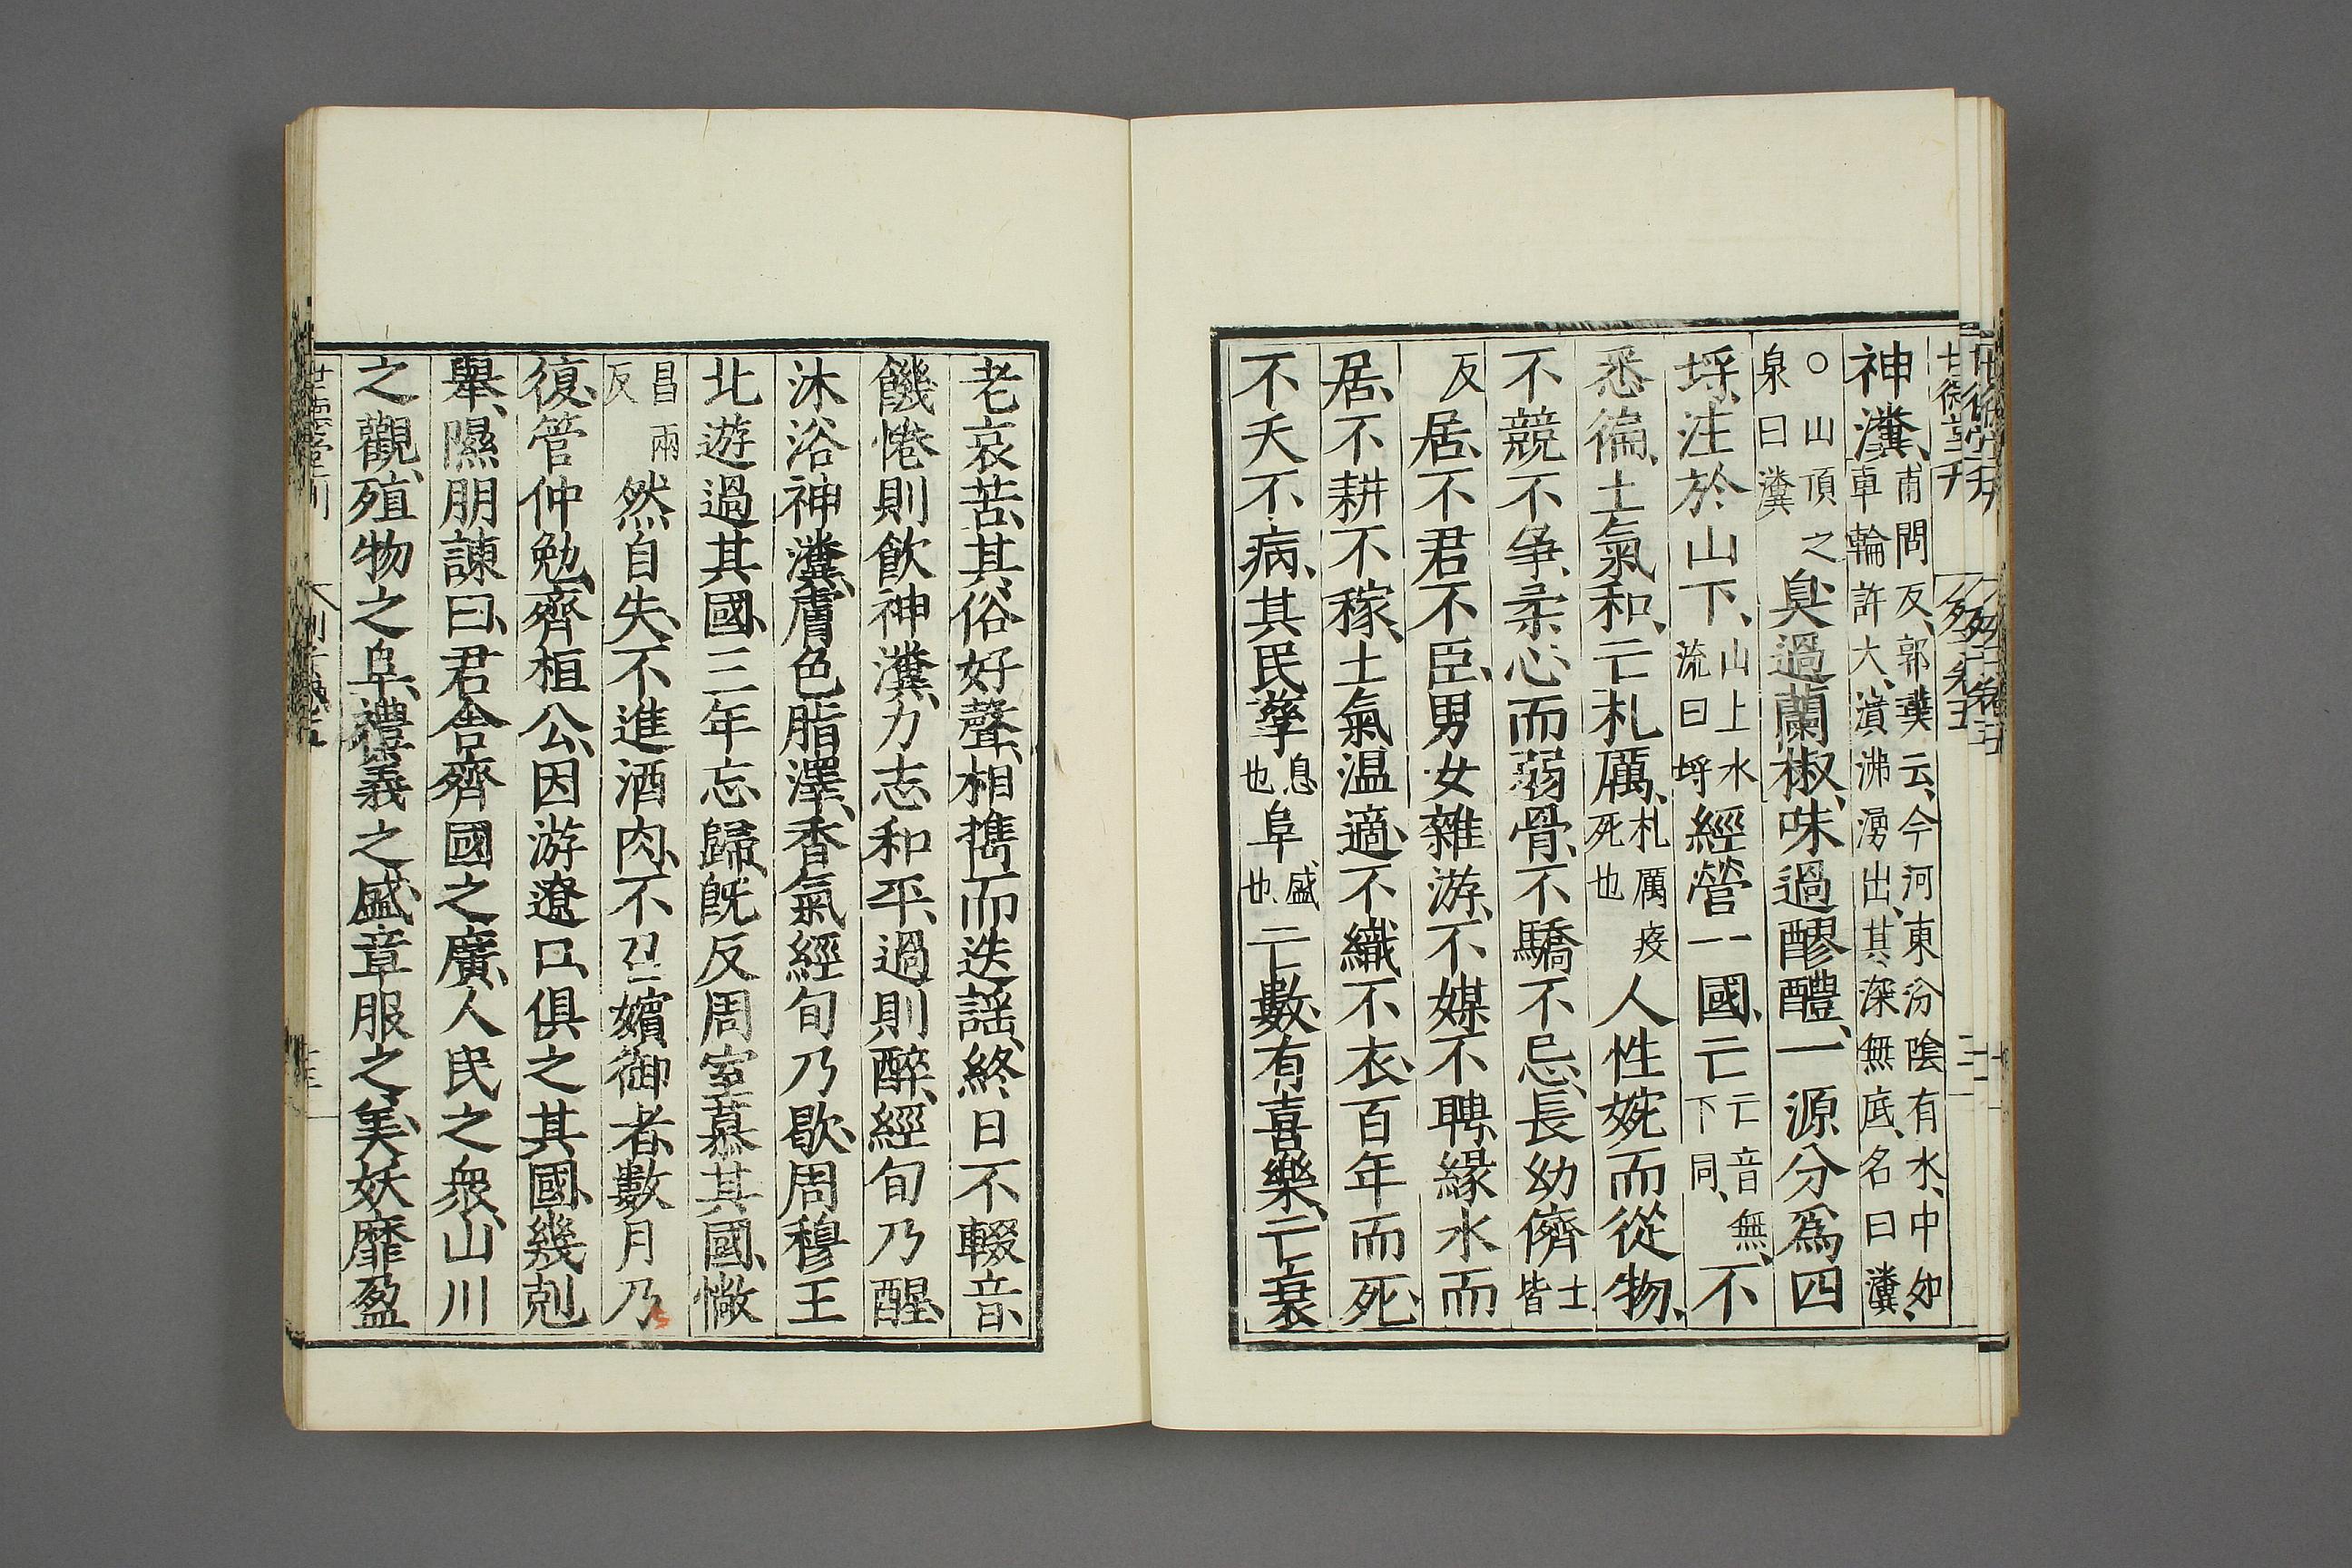 世德堂刊
列子卷五
神瀵、甫問反、郭璞云、今河東汾陰有水、中如
車輪許大、濆沸湧出、其深無底、名曰瀵、
○山頂之
泉曰瀵臭過蘭椒、味過醪醴、一源分爲四
埒、注於山下、山上水流曰埒經營一國、亡亡音無、下同、不
悉徧、土氣和、亡札厲、札厲疫死也人性婉而從物、
不競不争、柔心而弱骨、不驕不忌、長幼儕士皆
反居、不君不臣、男女雜游、不媒不聘、緣水而
居、不耕不稼、土氣温適、不織不衣、百年而死、
不夭不病、其民孳息也阜盛也、亡數、有喜樂、亡衰
老哀苦、其俗好聲、相擕而迭謡、終日不輟音、
饑惓則飲神瀵、力志和平、過則醉、經旬乃醒、
沐浴神瀵、膚色脂澤、香氣經旬乃歇、周穆王
北遊過其國、三年忘歸、旣反周室、慕其國、惝
昌兩反然自失、不進酒肉、不召嬪御者、數月乃
復、管仲勉齊桓公、因游遼口、俱之其國、幾剋
舉、隰朋諫曰、君舍齊國之廣、人民之衆、山川
之觀、殖物之阜、禮義之盛、章服之美、妖靡盈